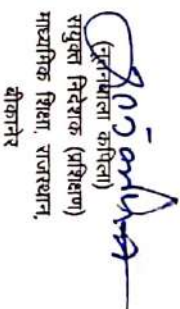 (नूतनबाला कपिला)
संयुक्त निदेशक (प्रशिक्षण)
माध्यमिक शिक्षा, राजस्थान,
बीकानेर